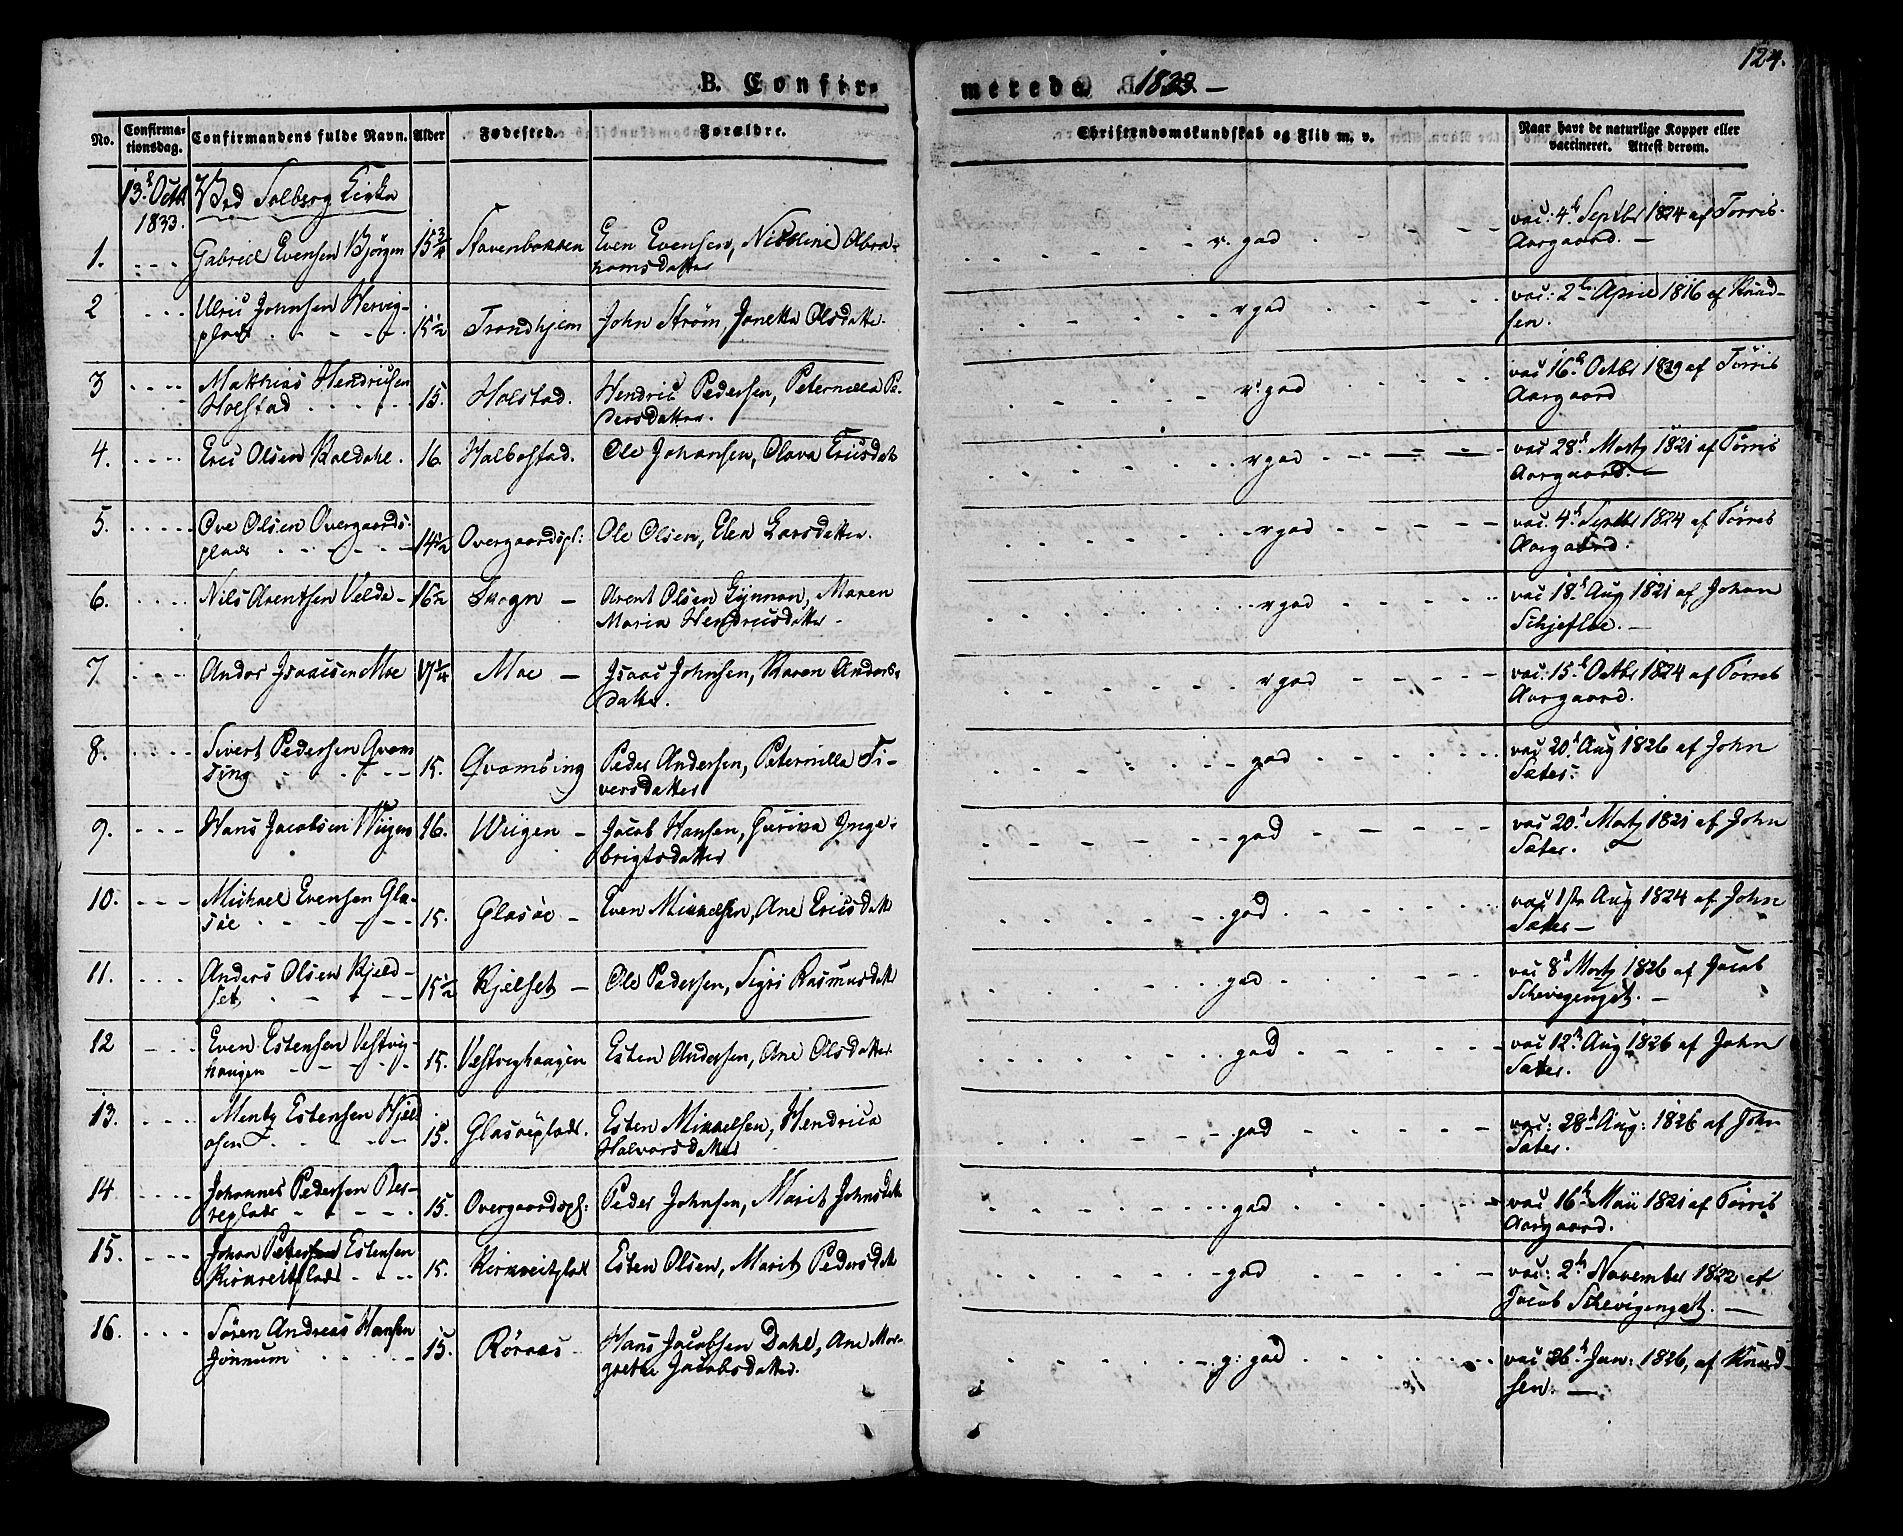 124.
B. Confir-
merede 1833 -
No.
Confirma-
tionsdag.
Confirmandens fulde Navn.
Alder
Fødested.
Forældre.
Christendomskundskab og Flid m. v.
Naar havt de naturlige Kopper eller
vaccineret. Attest derom.
13de Octbr
1833.
Ved Salberg Kirke
1. - - - Gabriel Evensen Bjørgen 15 3/4 Stavenbakken Even Evensen, Nicoline Abra-
hamsdatter v. god vac: 4de Septbr 1824 af Tørris
Aargaard. -
2 - - - Ulric Johnsen Hervig-
plads 15 1/2 Trondhjem John Strøm, Jonetta Olsdatter v god vac: 2den April 1816 af Knud-
sen.
3 - - - Matthias Hendricsen
Holstad 15. Holstad. Hendric Pedersen, Peternella Pe-
dersdatter. v. god vac 16de Octbr 1829 af Tørris
Aargaard
4. - - - Eric Olsen Kaldahl. 16. Halbostad. Ole Johansen, Olava Ericsdatt v god vac 28de Martz 1821 af Tørris
Aargaard. -
5. - - - Ove Olsen Overgaards-
plads 14 1/2 Overgaardspl: Ole Olsen, Elen Larsdatter. v god vac: 4de Septbr 1824 af Tørres
Aargaard.
6. - - - Nils Arentsen Velde - 16 1/2 Skogn - Arent Olsen Gynnan, Maren
Maria Hendricsdatter - v god vac: 18de Aug 1821 af Johan
Schjefloe. -
7 - - - Andor Isaacsen Moe 17 1/4 Moe - Isaac Johnsen, Karen Anders-
datter. v god vac: 15de Octbr 1824 af Tørres
Aargaard.
8. - - - Sivert Pedersen Qvam
sing 15. Qvamsing Peder Andersen, Peternilla Si-
versdatter god vac 20de Aug 1826 af John
Sater.
9. - - - Hans Jacobsen Wiigen 16. Wiigen - Jacob Hansen, Guriva Inge-
brigtsdatter god vac: 20de Martz 1821 af John
Sater.
10. - - - Michael Evensen Gla-
søe 15. Glasøe - Even Mikkelsen, Ane Ericsdatt god vac 1ste Aug 1824 af John
Sater -
11. - - - Anders Olsen Kjeld-
set 15 1/2 Kjelset - Ole Pedersen, Segri Rasmusdatt god vac 8de Martz 1826 af Jacob
Schevigenget. -
12 - - - Even Estensen Vestvig-
haugen 15. Vestvighaugen Esten Andersen, Ane Olsdatter god vac 12te Aug 1826 af John
Sater.
13. - - - Mentz Estensen Hjel
osen 15. Glasøeplads. Esten Mikkelsen, Hendrica
Halvorsdatter god vac: 28de Aug: 1826 af John
Sater.
14 - - - Johannes Pedersen Ber-
geplads 15. Overgaardspl: Peder Johnsen, Marit Johnsdatt god vac 16de Maii 1821 af Tørris
Aargaard.
15. - - - Johan Petersen Estensen
Kirkreitplads 15. Kirkreitplad Esten Olsen, Marit Pedersdatt god vac: 2den November 1822 af
Jacob Schevigenget. -
16. - - - Søren Andreas Hansen
Jønnum 15. Røraas Hans Jacobsen Dahl, Ane Mar-
grethe Jacobsdatter. g: god vac 26de Jan: 1826, af Knud-
sen. -